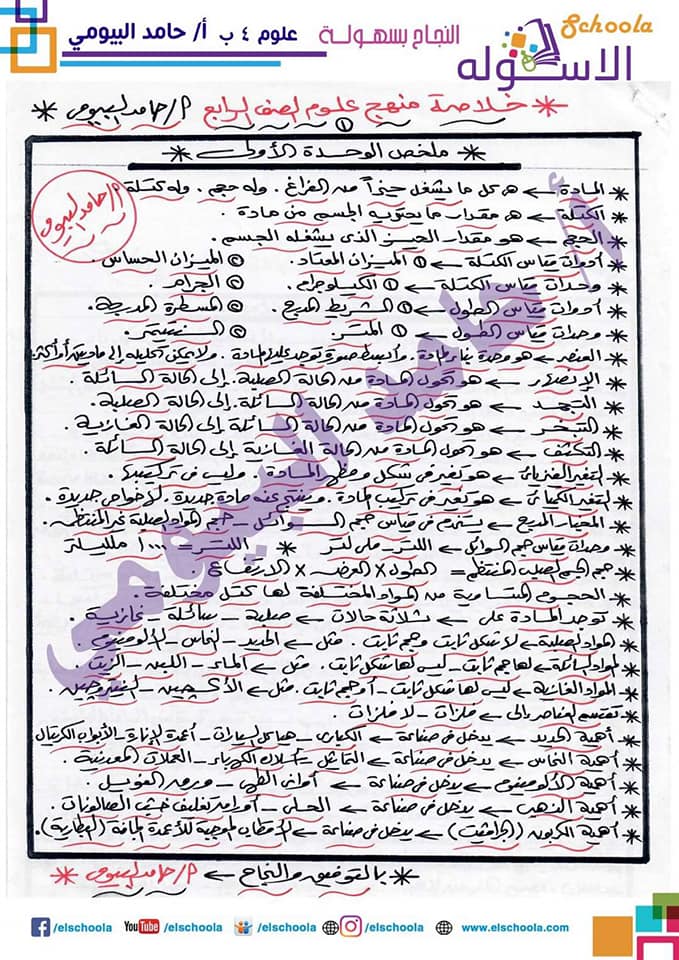 علوم ٤ ب أ/ حامد البيومي
النجاح بسهولة
Schoola
الاسكوله
* خلاصة منهج علوم الصف الرابع م/حامد البيومى *
①
* ملخص الوحدة الأولى *
م/حامد البيومى
* المادة ← هى كل ما يشغل حيزاً من الفراغ . وله حجم . وله كتلة
* الكتلة ← هى مقدار ما يحتويه الجسم من مادة .
* الحجم ← هو مقدار الحيز الذى يشغله الجسم .
* أدوات قياس الكتلة ← ① الميزان المعتاد . ② الميزان الحساس .
* وحدات قياس الكتلة ← ① الكيلوجرام . ② الجرام .
* أدوات قياس الطول ← ① الشريط المدرج . ② المسطرة المدرجة .
* وحدات قياس الطول ← ① المتر ② السنتيمتر .
* العنصر ← هو وحدة بناء المادة . وأبسط صورة توجد عليها المادة . ولا يمكن تحليله إلى مادتين أو أكثر
* الإنصهار ← هو تحول المادة من الحالة الصلبة . إلى الحالة السائلة .
* التجمد ← هو تحول المادة من الحالة السائلة . إلى الحالة الصلبة .
* التبخر ← هو تحول المادة من الحالة السائلة إلى الحالة الغازية .
* التكثف ← هو تحول المادة من الحالة الغازية إلى الحالة السائلة
* التغير الفيزيائى ← هو تغير فى شكل ومظهر المادة . وليس فى تركيبها
* التغير الكيميائى ← هو تغير فى تركيب المادة . وينتج عنه مادة جديدة . لها خواص جديدة .
* المخبار المدرج ← يستخدم فى قياس حجم السوائل – حجم المواد الصلبة غير المنتظمة .
* وحدات قياس حجم السوائل ← اللتر – مللى لتر * اللتر = ١٠٠٠ ملليلتر
* حجم الجسم الصلب المنتظم = الطول × العرض × الارتفاع .
* الحجوم المتساوية من المواد المختلفة لها كتل مختلفة .
* توجد المادة على ← ثلاثة حالات ← صلبة – سائلة – غازية .
* المواد الصلبة ← لها شكل ثابت وحجم ثابت . مثل ← الحديد – النحاس – الألومنيوم .
* المواد السائلة ← لها حجم ثابت – ليس لها شكل ثابت . مثل ← الماء – اللبن – الزيت .
* المواد الغازية ← ليس لها شكل ثابت – أو حجم ثابت . مثل ← الأكسجين – النيتروجين .
* تقسم العناصر إلى ← فلزات – لا فلزات
* أهمية الحديد ← يدخل فى صناعة ← الكبارى – هياكل السيارات – أعمدة الإنارة – الأبواب
* أهمية النحاس ← يدخل فى صناعة ← التماثيل – أسلاك الكهرباء – العملات المعدنية .
* أهمية الألومنيوم ← يدخل فى صناعة ← أوانى الطهى – وورق الفويل .
* أهمية الذهب ← يدخل فى صناعة ← الحلى – أو تغليف خشب الصالونات .
* أهمية الكربون (الجرافيت) ← يدخل فى صناعة ← الأقطاب الموجبة للأعمدة الجافة (البطارية) .
* بالتوفيق والنجاح ← م/حامد البيومى *
أ/ حامد البيومي
/elschoola
YouTube /elschoola
/elschoola
/elschoola
www.elschoola.com